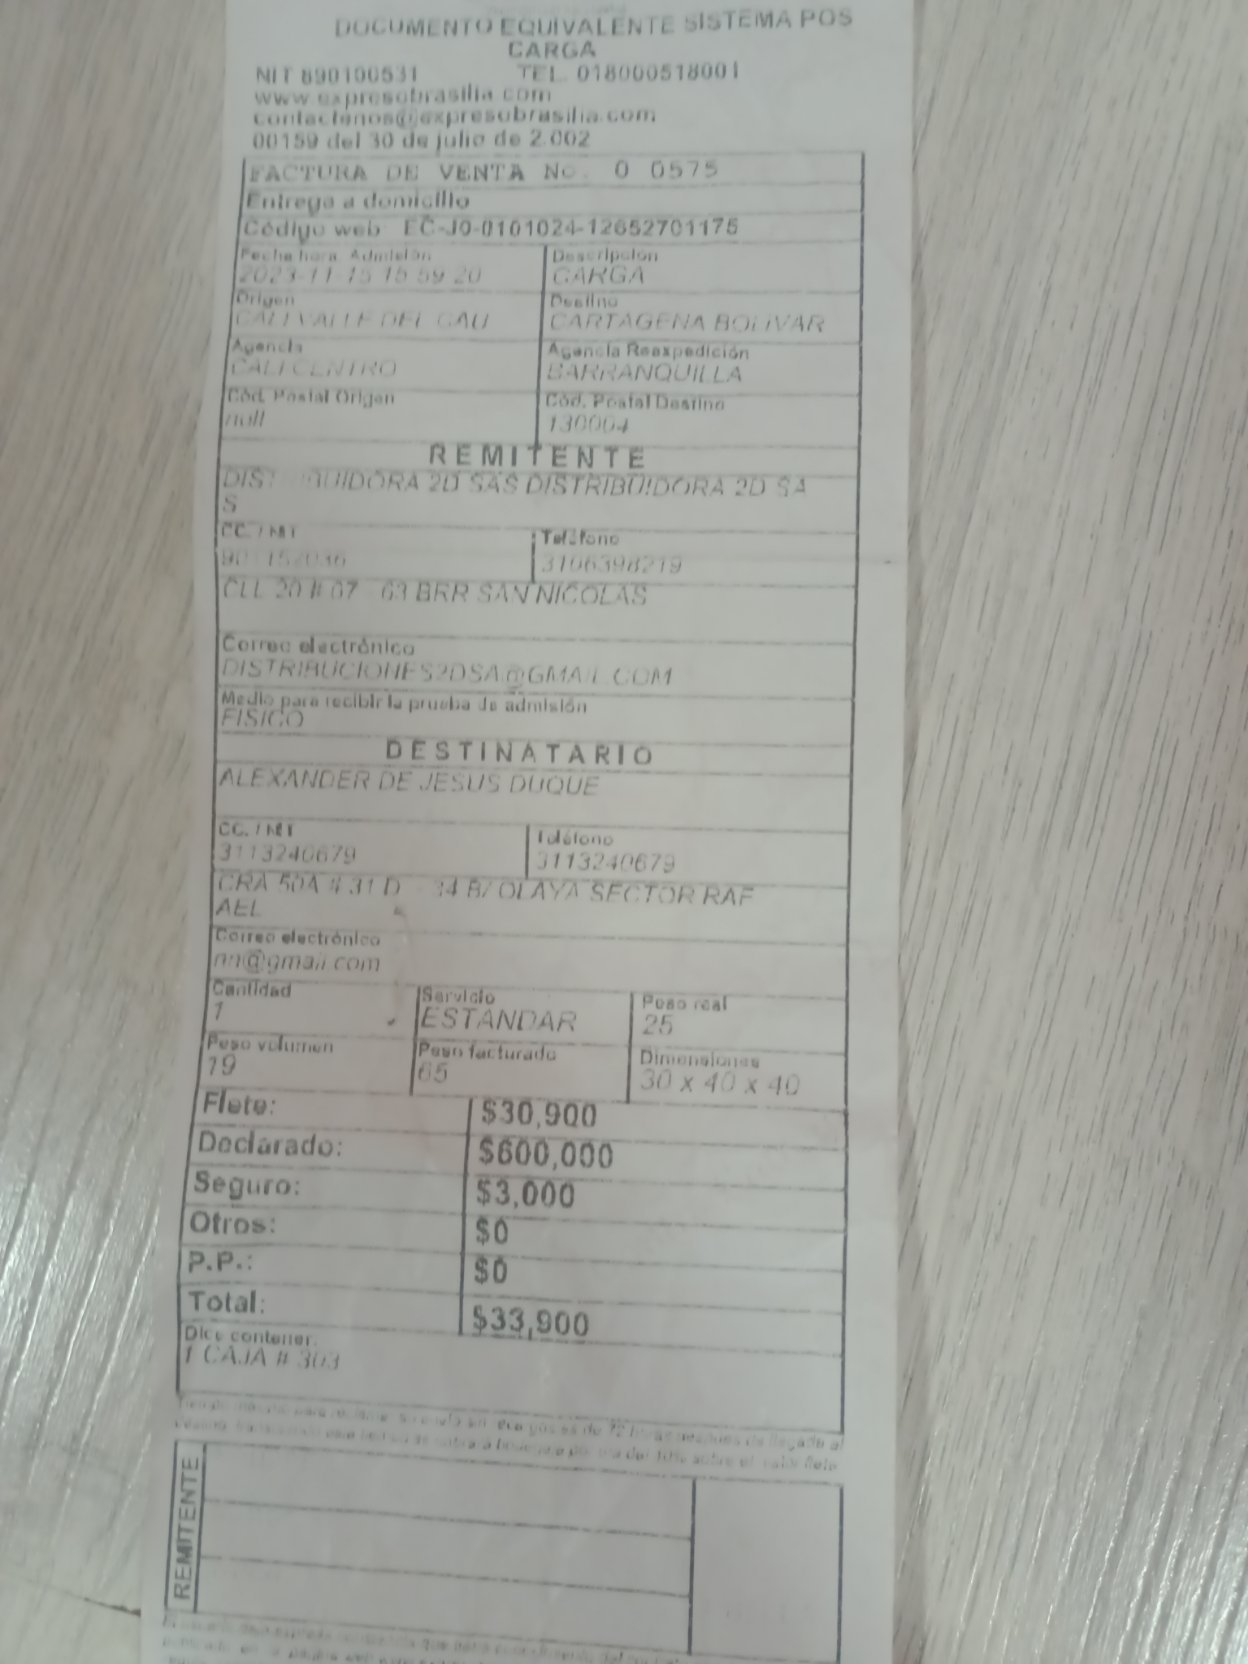 DOCUMENTO EQUIVALENTE SISTEMA POS
CARGA
NIT 890100531 TEL. 018000518001
www expresobrasilia com
contactenos@expresobrasilia.com
00159 del 30 de julio de 2.002
FACTURA DE VENTA No. 0 0575
Entrega a domicilio
Código web EC-J0-0101024-12652701175
Fecha hora Admisión Descripción
2023-11-15 15 59 20 CARGA
Origen Destino
CALI VALLE DEL CAU CARTAGENA BOLIVAR
Agencia Agencia Reexpedición
CALI CENTRO BARRANQUILLA
Cód. Postal Origen Cód. Postal Destino
null 130004
REMITENTE
DIST BUIDORA 2D SAS DISTRIBUIDORA 2D SA
S
CC. / NIT Teléfono
3106398219
CLL 20 # 07 63 BRR SAN NICOLAS
Correo electrónico
DISTRIBUCIONES2DSA@GMAIL.COM
Medio para recibir la prueba de admisión
FISICO
DESTINATARIO
ALEXANDER DE JESUS DUQUE
CC. / NIT Teléfono
3113240679 3113240679
CRA 50A # 31 D 34 B/ OLAYA SECTOR RAF
AEL
Correo electrónico
nn@gmail.com
Cantidad Servicio Peso real
1 ESTANDAR 25
Peso volumen Peso facturado Dimensiones
19 65 30 x 40 x 40
Flete: $30,900
Declarado: $600,000
Seguro: $3,000
Otros: $0
P.P.: $0
Total: $33,900
Dice contener:
1 CAJA # 303
para reclamar es de 72 horas después de llegado al
sobre el valor flete
REMITENTE